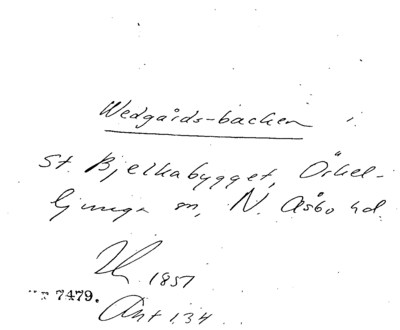 Wedgårds-backen
St. Bjelkabygget, Örkel-
ljunga sn, N. Åsbo hd.
1851
7479.
Ant 134